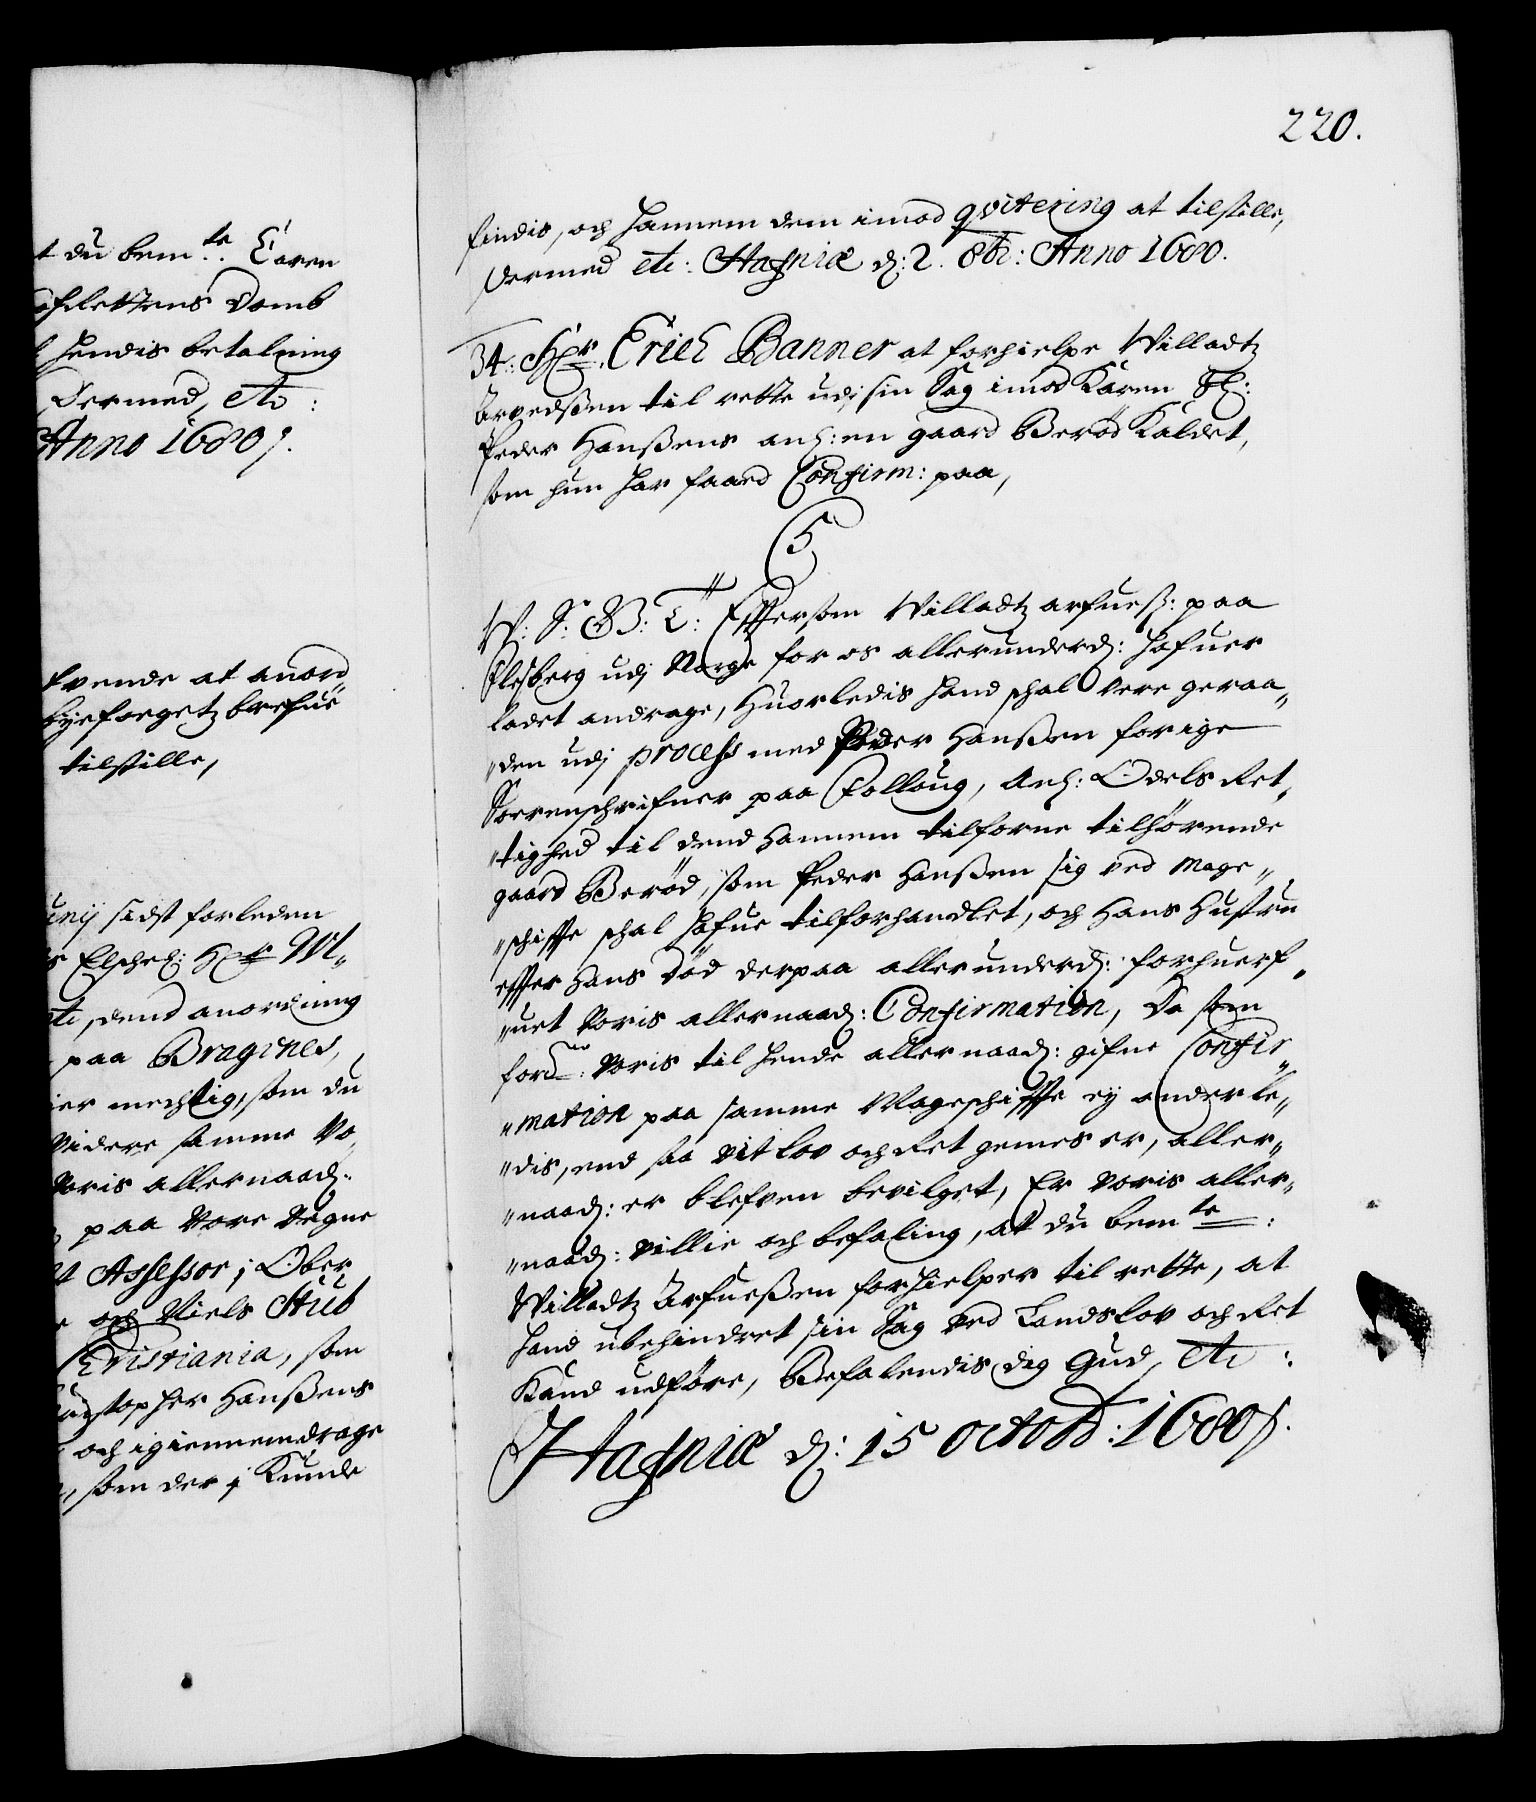 t du bem.te Caren
ofrettens Domb
hendis betalning
Dermed, etc:
Anno 1680.
frende at anord
byeforgetz brefue
tilstille,
unij sidst forleden
s Elscheh: Hr W
etc, dend anordning
paa Bragenes,
ier mechtig, som du
videre samme Vo,
Voris allernaad:
paa Vore Vegne
Assessor i Ober
och Niels Stub
Christiania, som
Christopher Hanßens
och igiennemdrage
som der i Kunde
220.
findis, och hannem dem imod qvitering at tilstille,
Dermed etc: Hafniæ d: 2. 8br: Anno 1680.
34. Hr Erich Banner at forhielpe Willadtz
Arvedsen til rette udj sin Sag imod Karen Sl:
Peder Hanßens anl: en gaard Berød Kaldet,
som hun har faaed Confirm: paa,
C5
W: S: G: T: Eftersom Willadtz arfueß: paa
Flesberg udj Norge for os allerunderd: hafuer
ladet andrage, huorledis hand schal vere geraa„
„den udj process med Peder Hanßen forige
Sorenschrifuer paa Folloug, anl: Odels Ret„
„tighed til dend hannem tilforne tilhørende
gaard Berød, som Peder Hanßen sig ved Mage„
„schiffte schal hafue tilforhandlet, och hans hustru
effter hans død derpaa allerunderd: forhuerf„
„uet Voris allernaad: Confirmation, Da som
fordne: Voris til hende allernaad: gifne Confir„
„mation paa samme Mageschiffte ej anderle„
„dis, end saa vit lov och Ret gemes er, aller„
„naad: er blefven bevilget, Er voris aller„
„naad: villie och befaling, at du bemte:
Willadtz Arfueßen forhielper til rette, at
hand ubehindret sin Sag ved Landslov och Ret
Kand udføre, Befalendis dig Gud, etc:
Hafniæ d: 15 octobr: 1680.